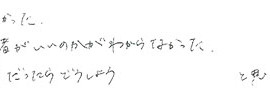 かった.
者がいいのかがわからなかった.
だったらどうしよう と思